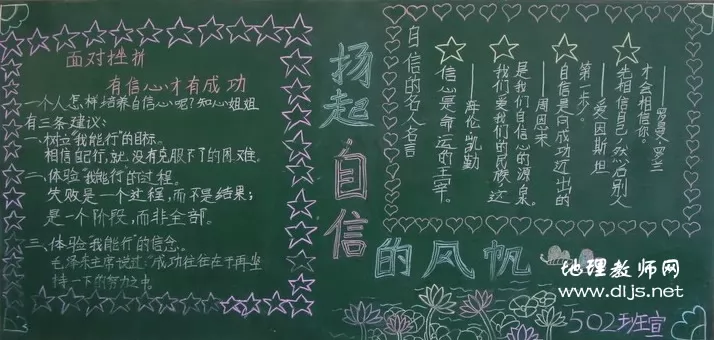 面对挫折
有信心才有成功
一个人怎样培养自信心呢?知心姐姐
有三条建议:
一、树立"我能行"的目标。
相信自己行,就没有克服不了的困难。
二、体验"我能行"的过程。
失败是一个过程,而不是结果;
是一个阶段,而非全部。
三、体验"我能行"的信念。
毛泽东主席说过:"成功往往在于再坚
持一下的努力之中
扬起自信
的风帆
自信的名人名言
信心是命运的主宰。
——海伦·凯勒
我们爱我们的民族,这
是我们自信心的源泉。
——周恩来
自信是向成功迈出的
第一步。
——爱因斯坦
先相信自己,然后别人
才会相信你。
——罗曼·罗兰
502班宣
地理教师网
www.dljs.net